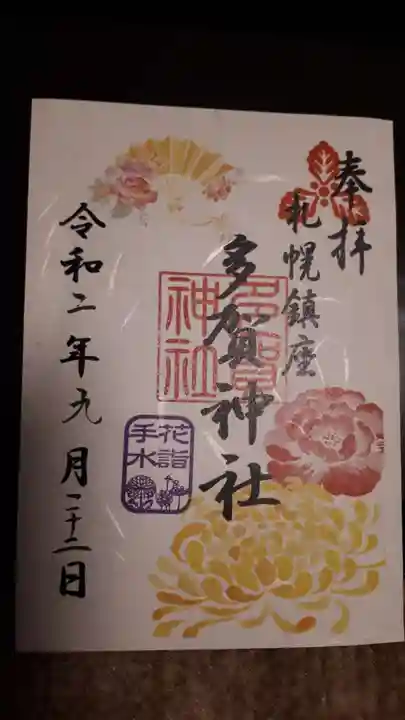 奉拝
札幌鎮座
多賀神社
多賀
神社
花詣
手水
令和二年九月二十二日